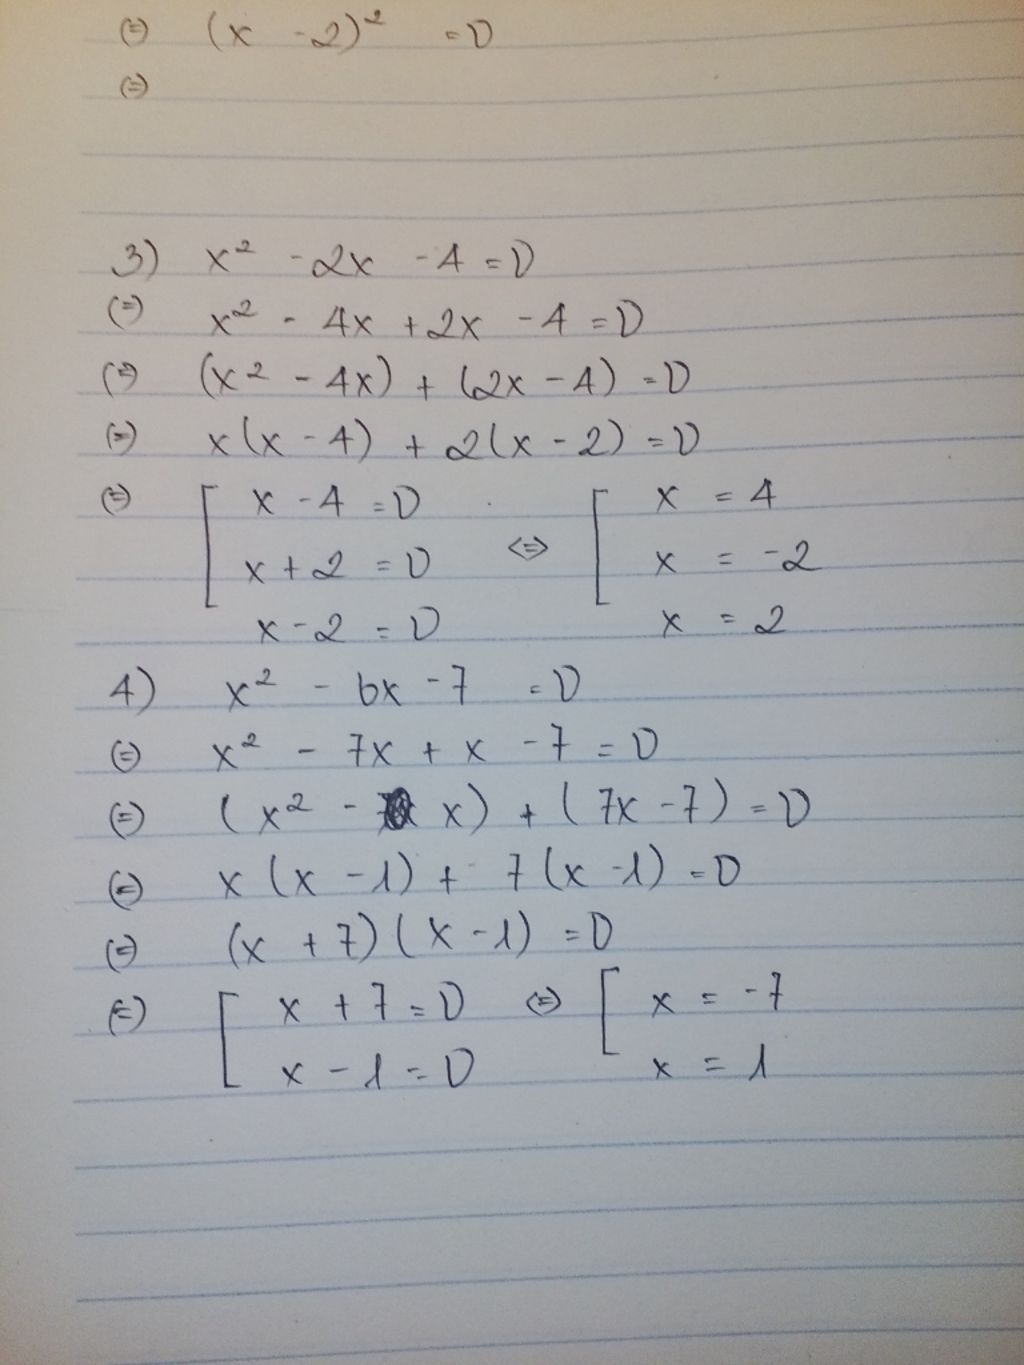 (=) (x - 2)² = 0
(=)
3) x² - 2x - 4 = 0
(=) x² - 4x + 2x - 4 = 0
(=) (x² - 4x) + (2x - 4) = 0
(=) x(x - 4) + 2(x - 2) = 0
(=) [ x - 4 = 0 <=> [ x = 4
x + 2 = 0 x = -2
x - 2 = 0 x = 2
4) x² - 6x - 7 = 0
(=) x² - 7x + x - 7 = 0
(=) (x² - x) + (7x - 7) = 0
(=) x(x - 1) + 7(x - 1) = 0
(=) (x + 7)(x - 1) = 0
(=) [ x + 7 = 0 (=) [ x = -7
x - 1 = 0 x = 1